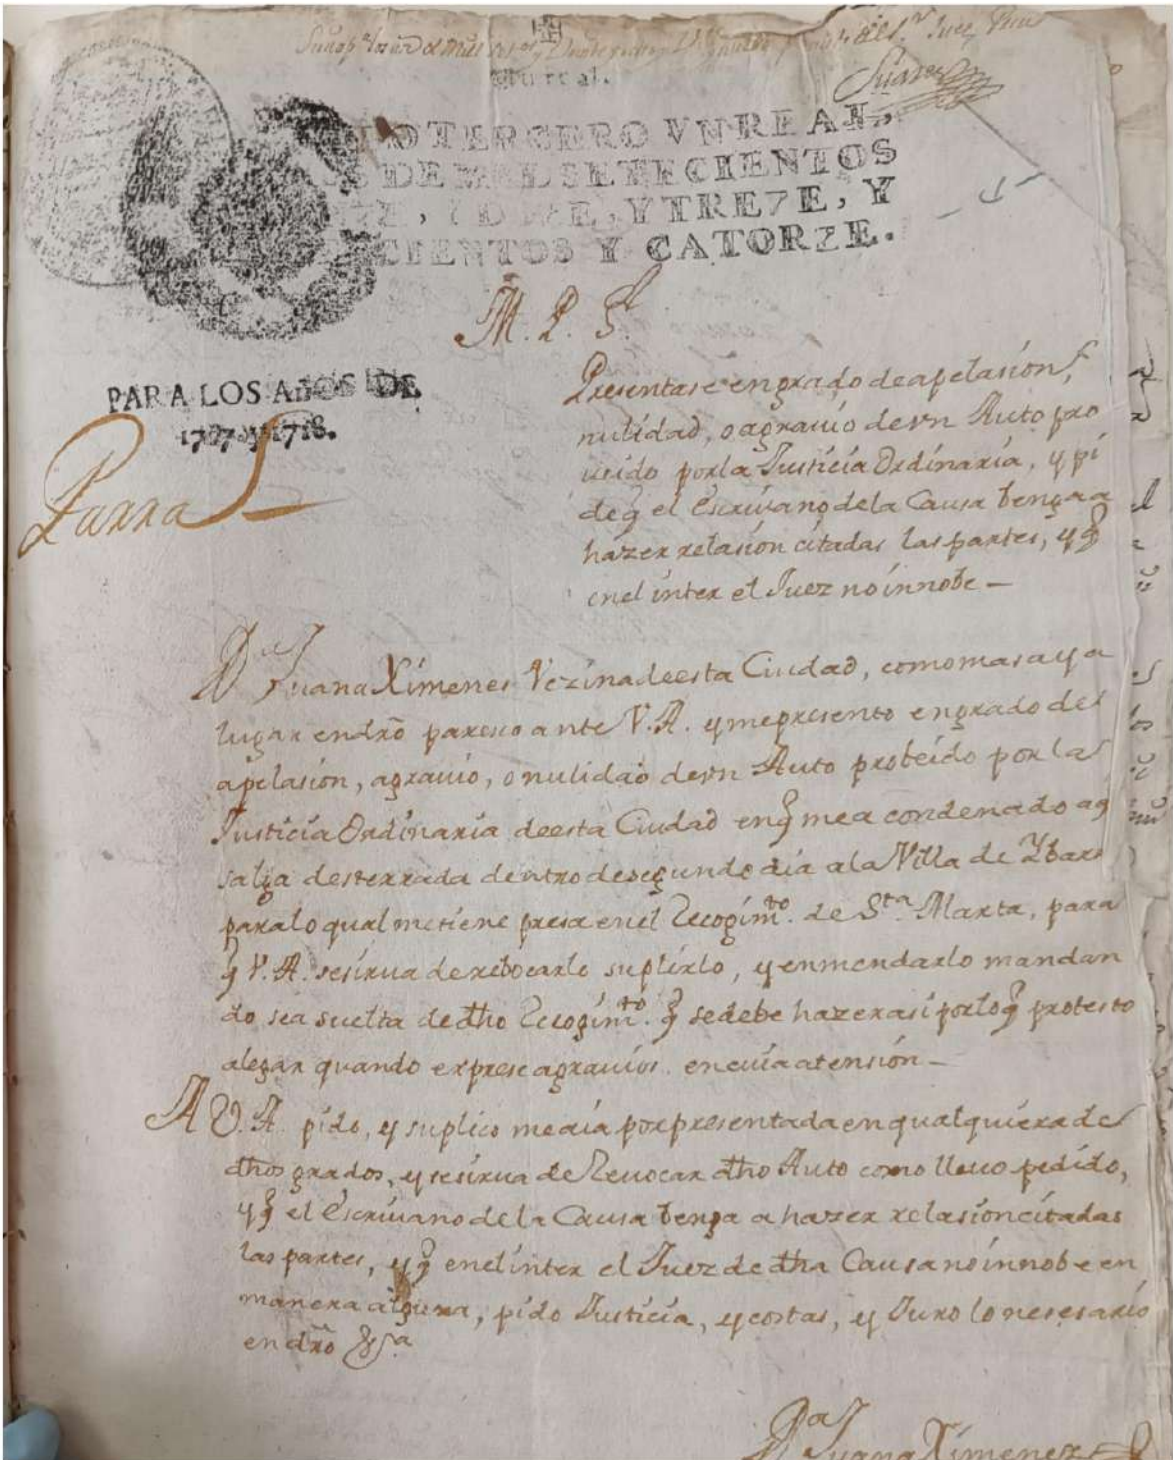 Vn real.
Suarez
O TERCERO VN REAL,
S DE MIL SETECIENTOS
ZE, Y DOZE, Y TREZE, Y
CIENTOS Y CATORZE.
M. P. S.
PARA LOS AñOS DE
1717 y 1718.
Parra
Presentase en grado de apelasion,
nulidad, o agrauio de vn Auto pro
ueido por la Justicia Ordinaria, y pi
de q̃ el Escriuano de la Causa benga a
hazer relasion citadas las partes, y q̃
en el inter el Juez no innobe —
D.ª Juana Ximenes Vezina de esta Ciudad, como mas aya
lugar en dr̃o paresco ante V.A. y me presento en grado de
apelasion, agrauio, o nulidad de vn Auto probeido por la
Justicia Ordinaria de esta Ciudad en q̃ me a condenado a q̃
salga desterrada dentro de segundo dia a la Villa de Ybarr
para lo qual me tiene presa en el Recogim.to de S.ta Marta, para
q̃ V.A. se sirua de rebocarlo suplirlo, y enmendarlo mandan
do sea suelta de dho Recogim.to q̃ se debe hazer asi por lo q̃ protesto
alegar quando exprese agrauios. en cuia atension —
A V.A. pido, y suplico me aia por presentada en qualquiera de
dhos grados, y se sirua de Reuocar dho Auto como lleuo pedido,
y q̃ el Escriuano de la Causa benga a hazer relasion citadas
las partes, y q̃ en el inter el Juez de dha Causa no innobe en
manera alguna, pido Justicia, y costas, y Juro lo nesesario
en dr̃o &.ª
D.ª Juana Ximenez